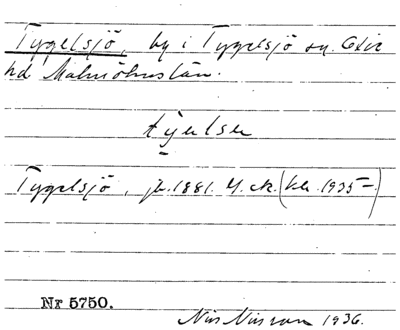 Tygelsjö, by i Tygelsjö sn. Oxie
hd Malmöhus län.
Tygelsjö, jb. 1881. 4. ek. (kl. 1935–)
Nr 5750.
Nils Nilsson 1936.